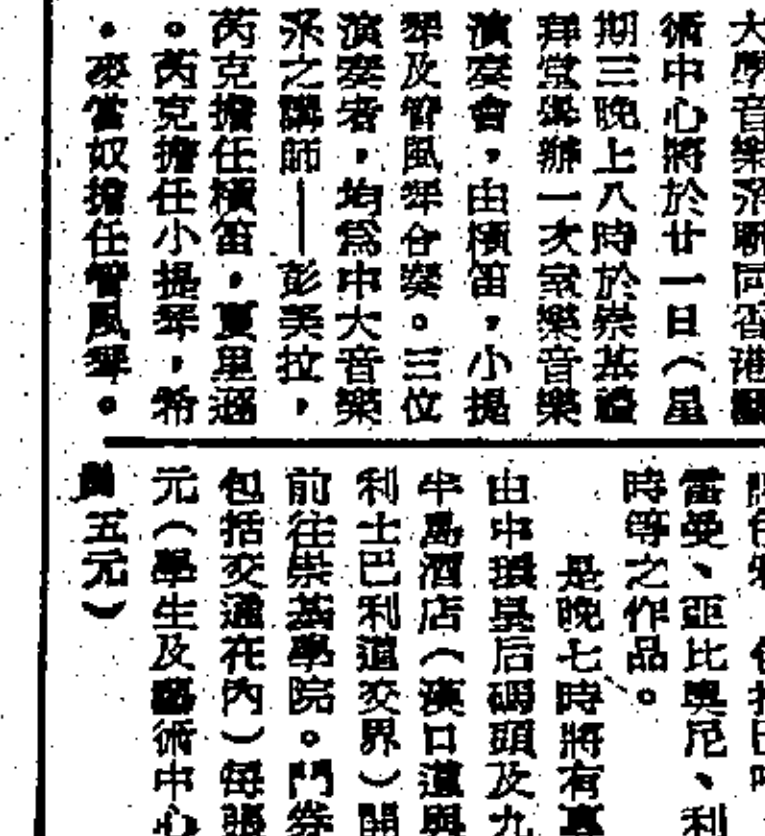 大學音樂系聯同香港藝
術中心將於廿一日（星
期三晚上八時於崇基禮
拜堂舉辦一次室樂音樂
演奏會，由橫笛，小提
琴及管風琴合奏。三位
演奏者，均爲中大音樂
系之講師——彭美拉，
芮克擔任橫笛，夏里遜
。芮克擔任小提琴，希
。麥當奴擔任管風琴。
雷曼、亞比奧尼、利
時等之作品。
是晚七時將有專
由中環皇后碼頭及九
半島酒店（漢口道與
利士巴利道交界）開
前往崇基學院。門券
包括交通在內）每張
元（學生及藝術中心
五元）